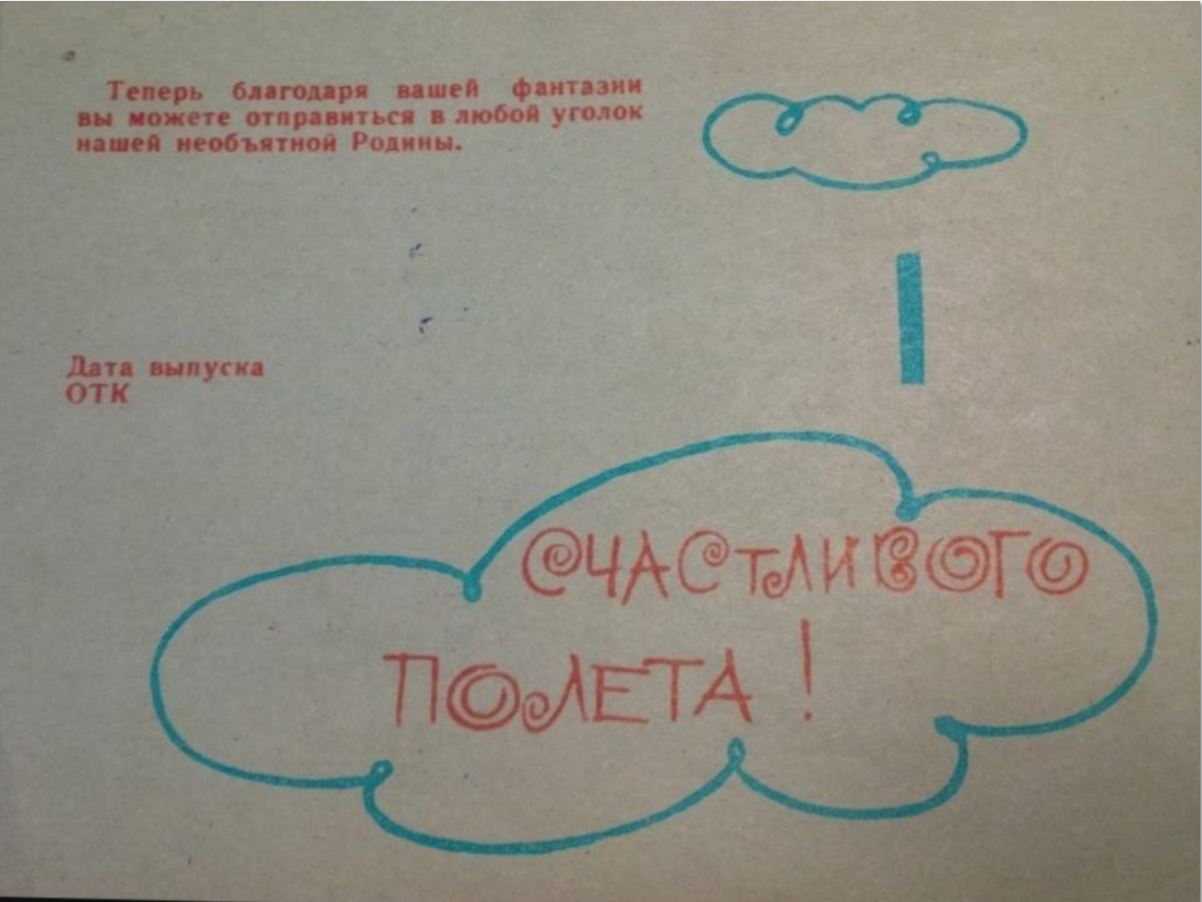 Теперь благодаря вашей фантазии
вы можете отправиться в любой уголок
нашей необъятной Родины.
Дата выпуска
ОТК
СЧАСТЛИВОГО
ПОЛЕТА !